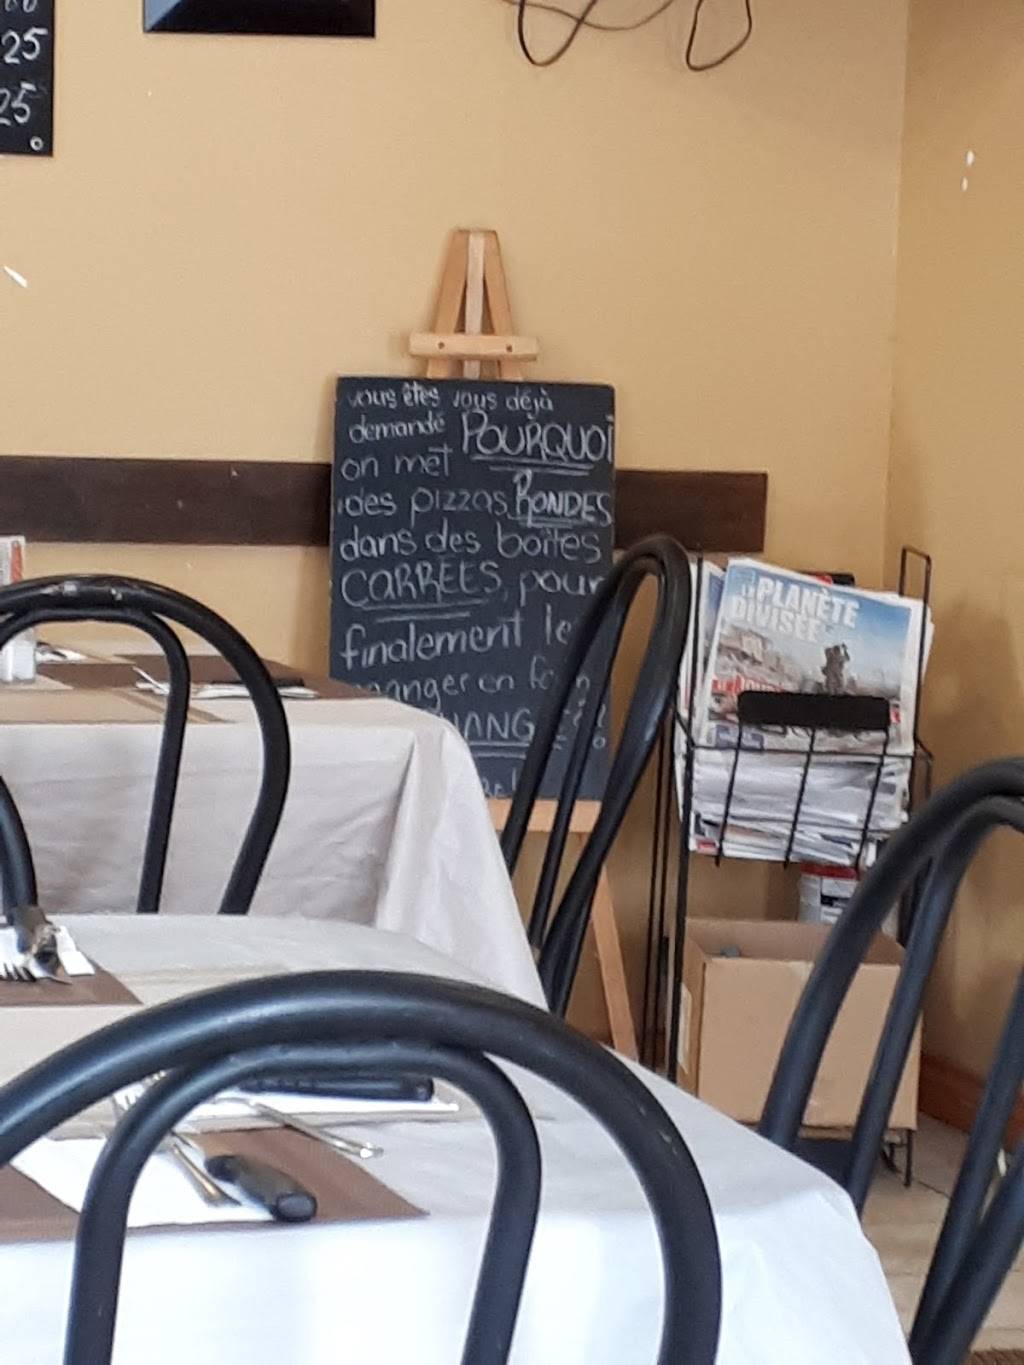 25
25
vous êtes vous déjà
demandé POURQUOI
on met
des pizzas RONDES
dans des boîtes
CARRÉES, pour
finalement le
manger en
PLANÈTE
DIVISÉE